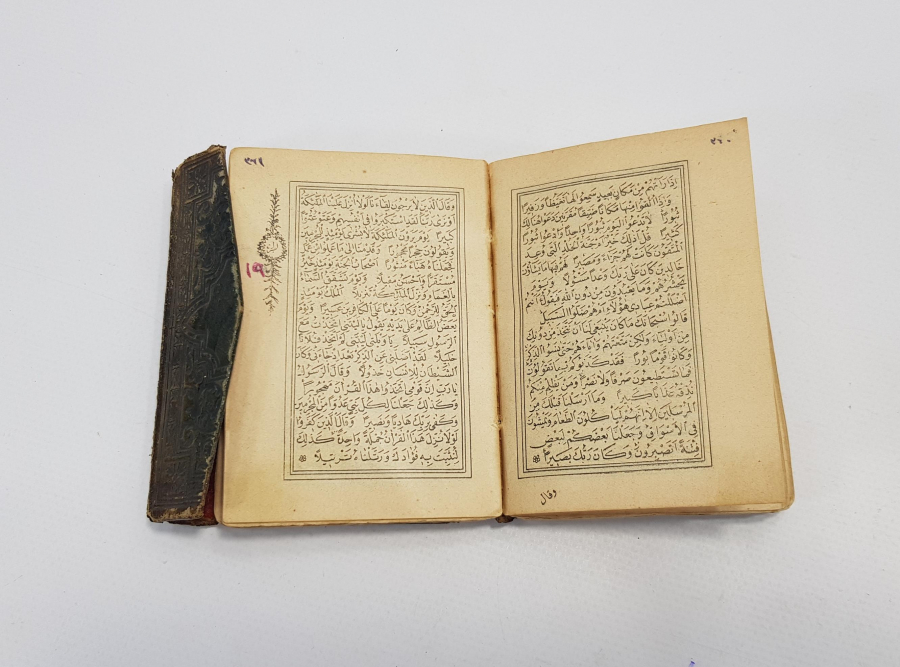 ٣٦٠
اِذَا رَاَتْهُمْ مِنْ مَكَانٍ بَعِيدٍ سَمِعُوا لَهَا تَغَيُّظًا وَزَفِيرًا
وَاِذَا اُلْقُوا مِنْهَا مَكَانًا ضَيِّقًا مُقَرَّنِينَ دَعَوْا هُنَالِكَ
ثُبُورًا لَا تَدْعُوا الْيَوْمَ ثُبُورًا وَاحِدًا وَادْعُوا ثُبُورًا
كَثِيرًا قُلْ اَذٰلِكَ خَيْرٌ اَمْ جَنَّةُ الْخُلْدِ الَّتِي وُعِدَ
الْمُتَّقُونَ كَانَتْ لَهُمْ جَزَاءً وَمَصِيرًا لَهُمْ فِيهَا مَا يَشَاؤُنَ
خَالِدِينَ كَانَ عَلٰى رَبِّكَ وَعْدًا مَسْؤُلًا وَيَوْمَ
يَحْشُرُهُمْ وَمَا يَعْبُدُونَ مِنْ دُونِ اللهِ فَيَقُولُ ءَاَنْتُمْ
اَضْلَلْتُمْ عِبَادِي هٰؤُلَاءِ اَمْ هُمْ ضَلُّوا السَّبِيلَ
قَالُوا سُبْحَانَكَ مَا كَانَ يَنْبَغِي لَنَا اَنْ نَتَّخِذَ مِنْ دُونِكَ
مِنْ اَوْلِيَاءَ وَلٰكِنْ مَتَّعْتَهُمْ وَاٰبَاءَهُمْ حَتّٰى نَسُوا الذِّكْرَ
وَكَانُوا قَوْمًا بُورًا فَقَدْ كَذَّبُوكُمْ بِمَا تَقُولُونَ
فَمَا تَسْتَطِيعُونَ صَرْفًا وَلَا نَصْرًا وَمَنْ يَظْلِمْ مِنْكُمْ
نُذِقْهُ عَذَابًا كَبِيرًا وَمَا اَرْسَلْنَا قَبْلَكَ مِنَ
الْمُرْسَلِينَ اِلَّا اِنَّهُمْ لَيَأْكُلُونَ الطَّعَامَ وَيَمْشُونَ
فِي الْاَسْوَاقِ وَجَعَلْنَا بَعْضَكُمْ لِبَعْضٍ
فِتْنَةً اَتَصْبِرُونَ وَكَانَ رَبُّكَ بَصِيرًا
وقال
٣٦١
وَقَالَ الَّذِينَ لَا يَرْجُونَ لِقَاءَنَا لَوْلَا اُنْزِلَ عَلَيْنَا الْمَلٰئِكَةُ
اَوْ نَرٰى رَبَّنَا لَقَدِ اسْتَكْبَرُوا فِي اَنْفُسِهِمْ وَعَتَوْ عُتُوًّا
كَبِيرًا يَوْمَ يَرَوْنَ الْمَلٰئِكَةَ لَا بُشْرٰى يَوْمَئِذٍ لِلْمُجْرِمِينَ
وَيَقُولُونَ حِجْرًا مَحْجُورًا وَقَدِمْنَا اِلٰى مَا عَمِلُوا مِنْ عَمَلٍ
فَجَعَلْنَاهُ هَبَاءً مَنْثُورًا اَصْحَابُ الْجَنَّةِ يَوْمَئِذٍ خَيْرٌ
مُسْتَقَرًّا وَاَحْسَنُ مَقِيلًا وَيَوْمَ تَشَقَّقُ السَّمَاءُ
بِالْغَمَامِ وَنُزِّلَ الْمَلٰئِكَةُ تَنْزِيلًا اَلْمُلْكُ يَوْمَئِذٍ
الْحَقُّ لِلرَّحْمٰنِ وَكَانَ يَوْمًا عَلَى الْكَافِرِينَ عَسِيرًا وَيَوْمَ
يَعَضُّ الظَّالِمُ عَلٰى يَدَيْهِ يَقُولُ يَا لَيْتَنِي اتَّخَذْتُ مَعَ
الرَّسُولِ سَبِيلًا يَا وَيْلَتٰى لَيْتَنِي لَمْ اَتَّخِذْ فُلَانًا
خَلِيلًا لَقَدْ اَضَلَّنِي عَنِ الذِّكْرِ بَعْدَ اِذْ جَاءَنِي وَكَانَ
الشَّيْطَانُ لِلْاِنْسَانِ خَذُولًا وَقَالَ الرَّسُولُ
يَا رَبِّ اِنَّ قَوْمِي اتَّخَذُوا هٰذَا الْقُرْاٰنَ مَهْجُورًا
وَكَذٰلِكَ جَعَلْنَا لِكُلِّ نَبِيٍّ عَدُوًّا مِنَ الْمُجْرِمِينَ
وَكَفٰى بِرَبِّكَ هَادِيًا وَنَصِيرًا وَقَالَ الَّذِينَ كَفَرُوا
لَوْلَا نُزِّلَ عَلَيْهِ الْقُرْاٰنُ جُمْلَةً وَاحِدَةً كَذٰلِكَ
لِنُثَبِّتَ بِهِ فُؤَادَكَ وَرَتَّلْنَاهُ تَرْتِيلًا
١٩